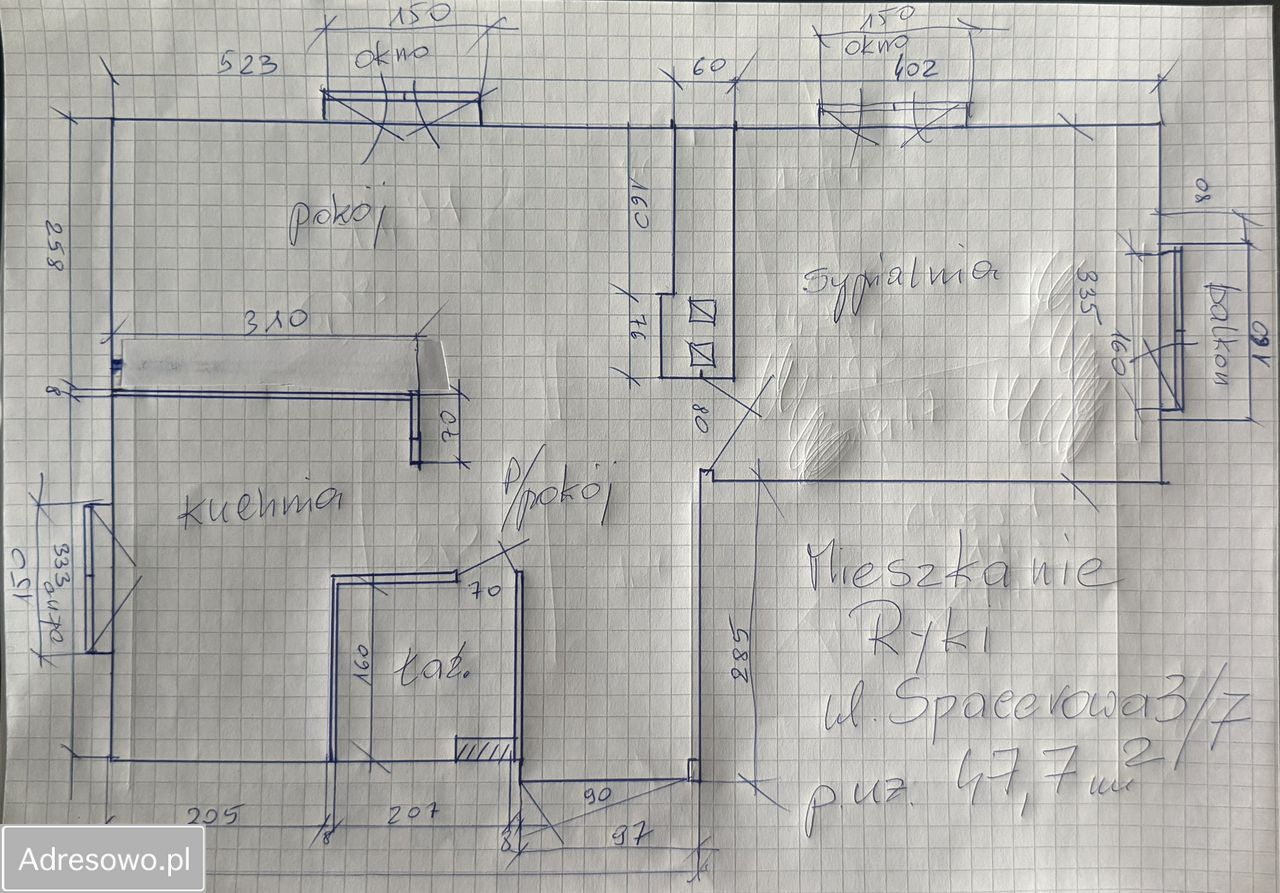 150
okno
150
okno
523
60
402
258
pokój
160
76
sypialnia
80
335
160
balkon
160
310
8
70
80
kuchnia
p/pokój
150
333
70
160
łaź.
588
Mieszkanie
Ryki
ul. Spacerowa 3/7
p.uż. 47,7 m²
90
205
8
207
8
97
Adresowo.pl